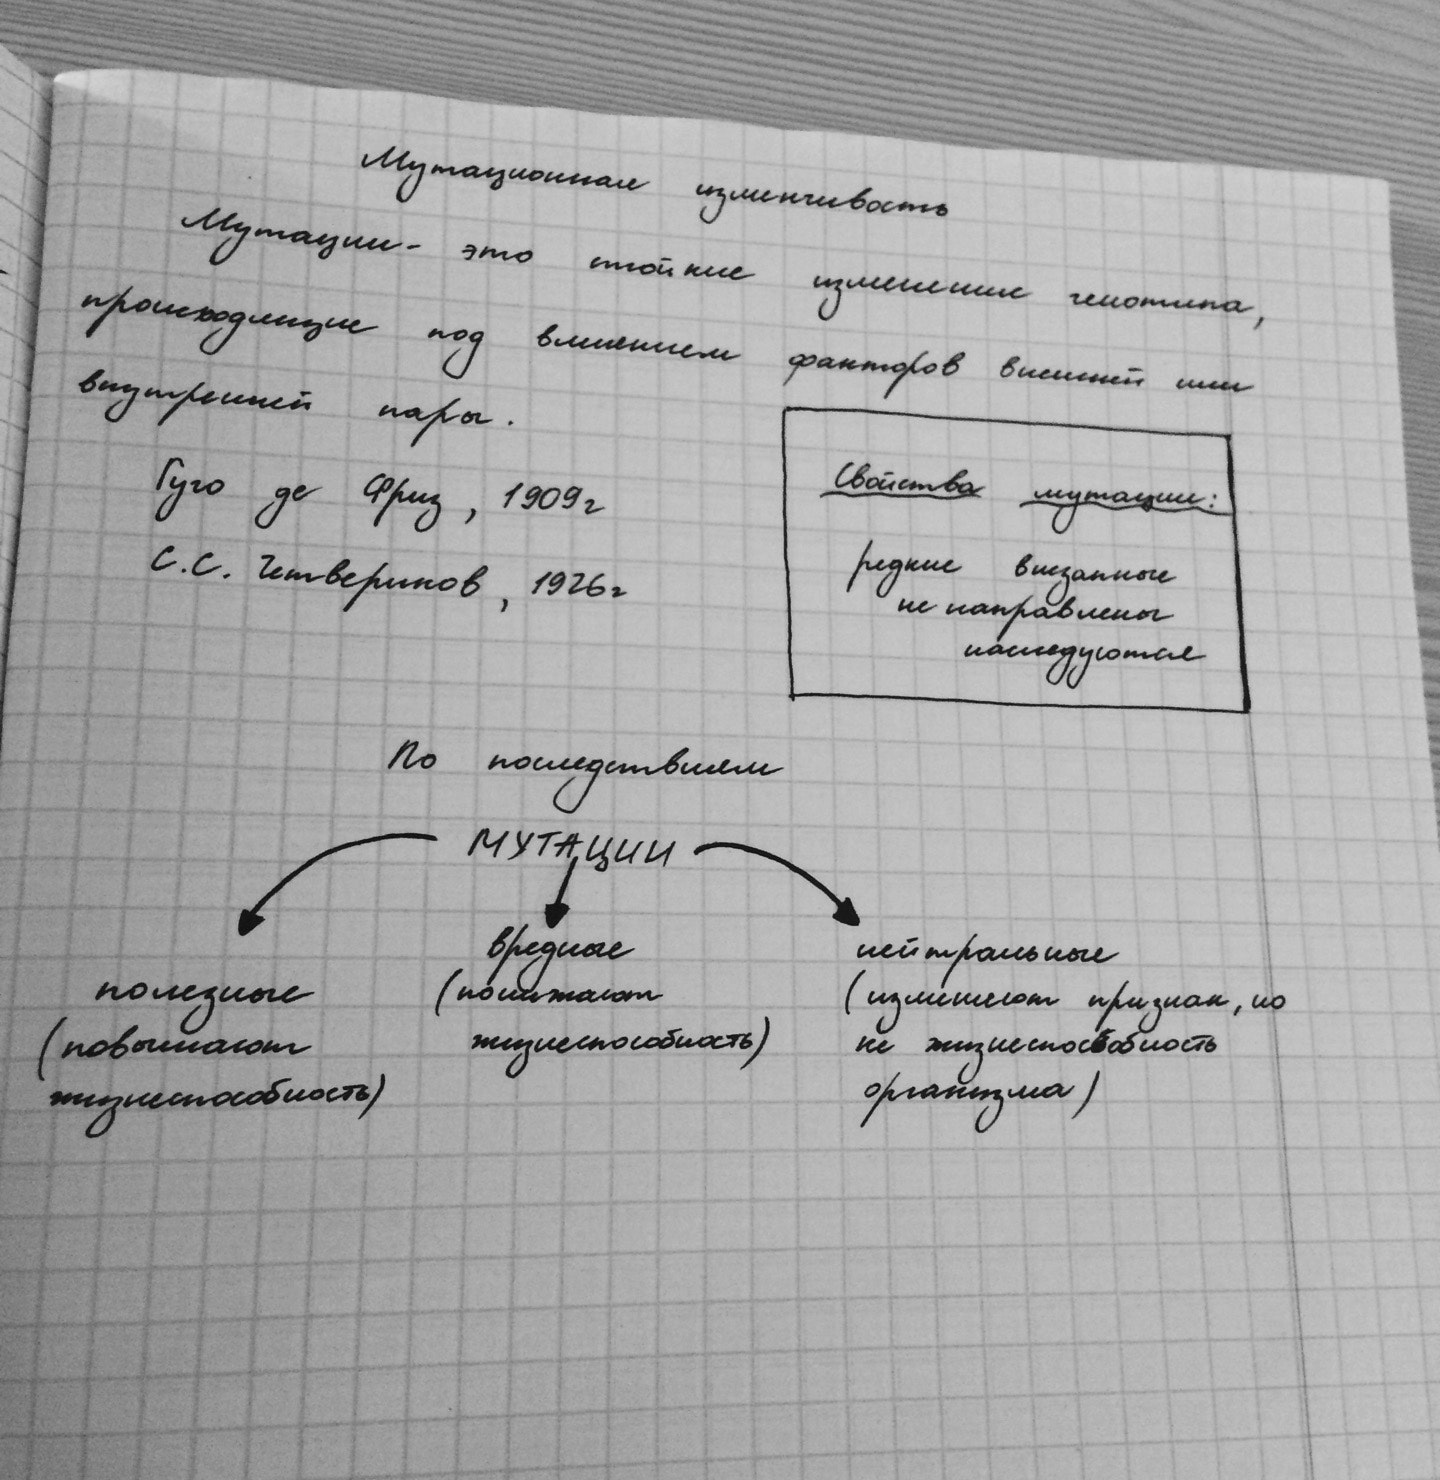 Мутационная изменчивость
Мутации - это стойкие изменение генотипа,
происходящие под влиянием факторов внешней или
внутренней пары.
Гуго де Фриз, 1909г
С.С. Четвериков, 1926г
Свойства мутации:
редкие внезапные
не направлены
наследуются
По последствиям
МУТАЦИИ
полезные
(повышают
жизнеспособность)
вредные
(понижают
жизнеспособность)
нейтральные
(изменяют признак, но
не жизнеспособность
организма)